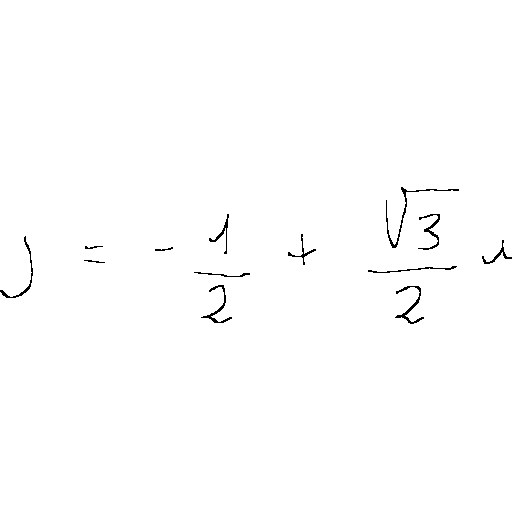 j = - \frac{1}{2} + \frac{\sqrt{3}}{2} i